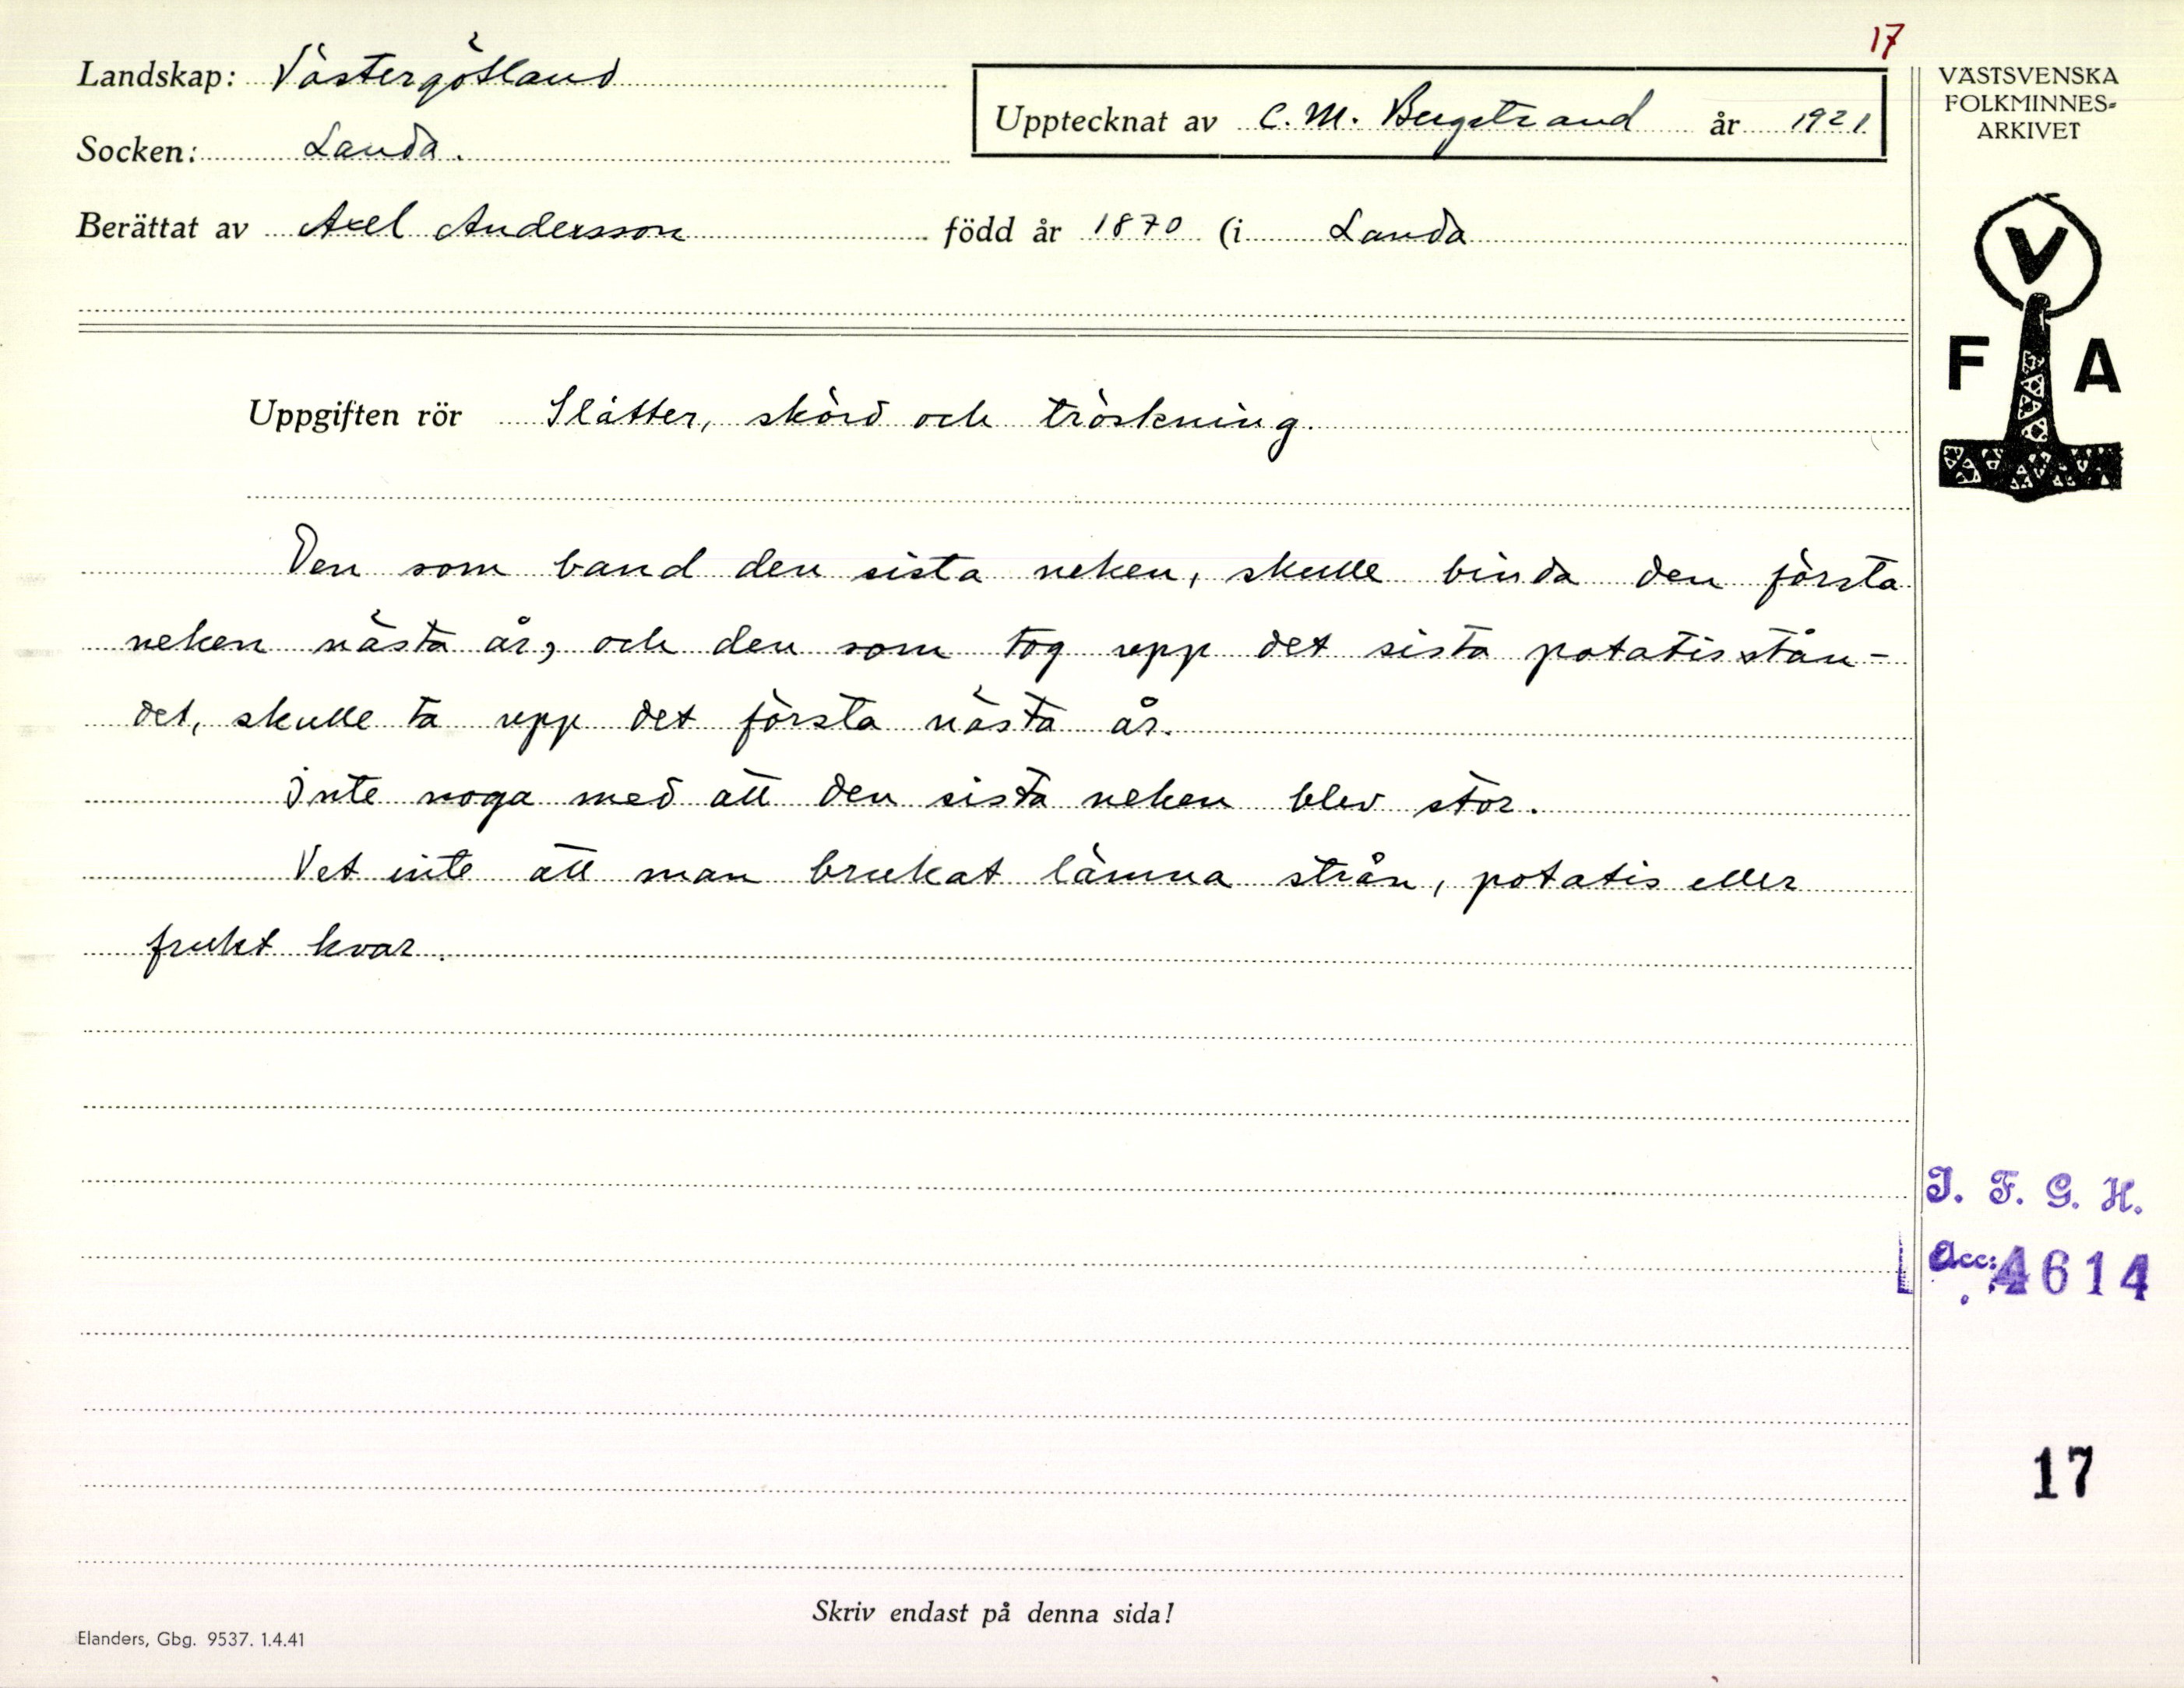 17
Landskap: Västergötland
Upptecknat av C. M. Bergstrand år 1921
VÄSTSVENSKA
FOLKMINNES=
ARKIVET
Socken: Landa.
Berättat av Axel Andersson född år 1870 (i Landa
V
F A
Uppgiften rör Slåtter, skörd och tröskning.
Den som band den sista neken, skulle binda den första
neken nästa år, och den som tog upp det sista potatisstån-
det, skulle ta upp det första nästa år.
Inte noga med att den sista neken blev stor.
Vet inte att man brukat lämna strån, potatis eller
frukt kvar.
I. F. G. H.
Acc: 4614
17
Skriv endast på denna sida!
Elanders, Gbg. 9537. 1.4.41